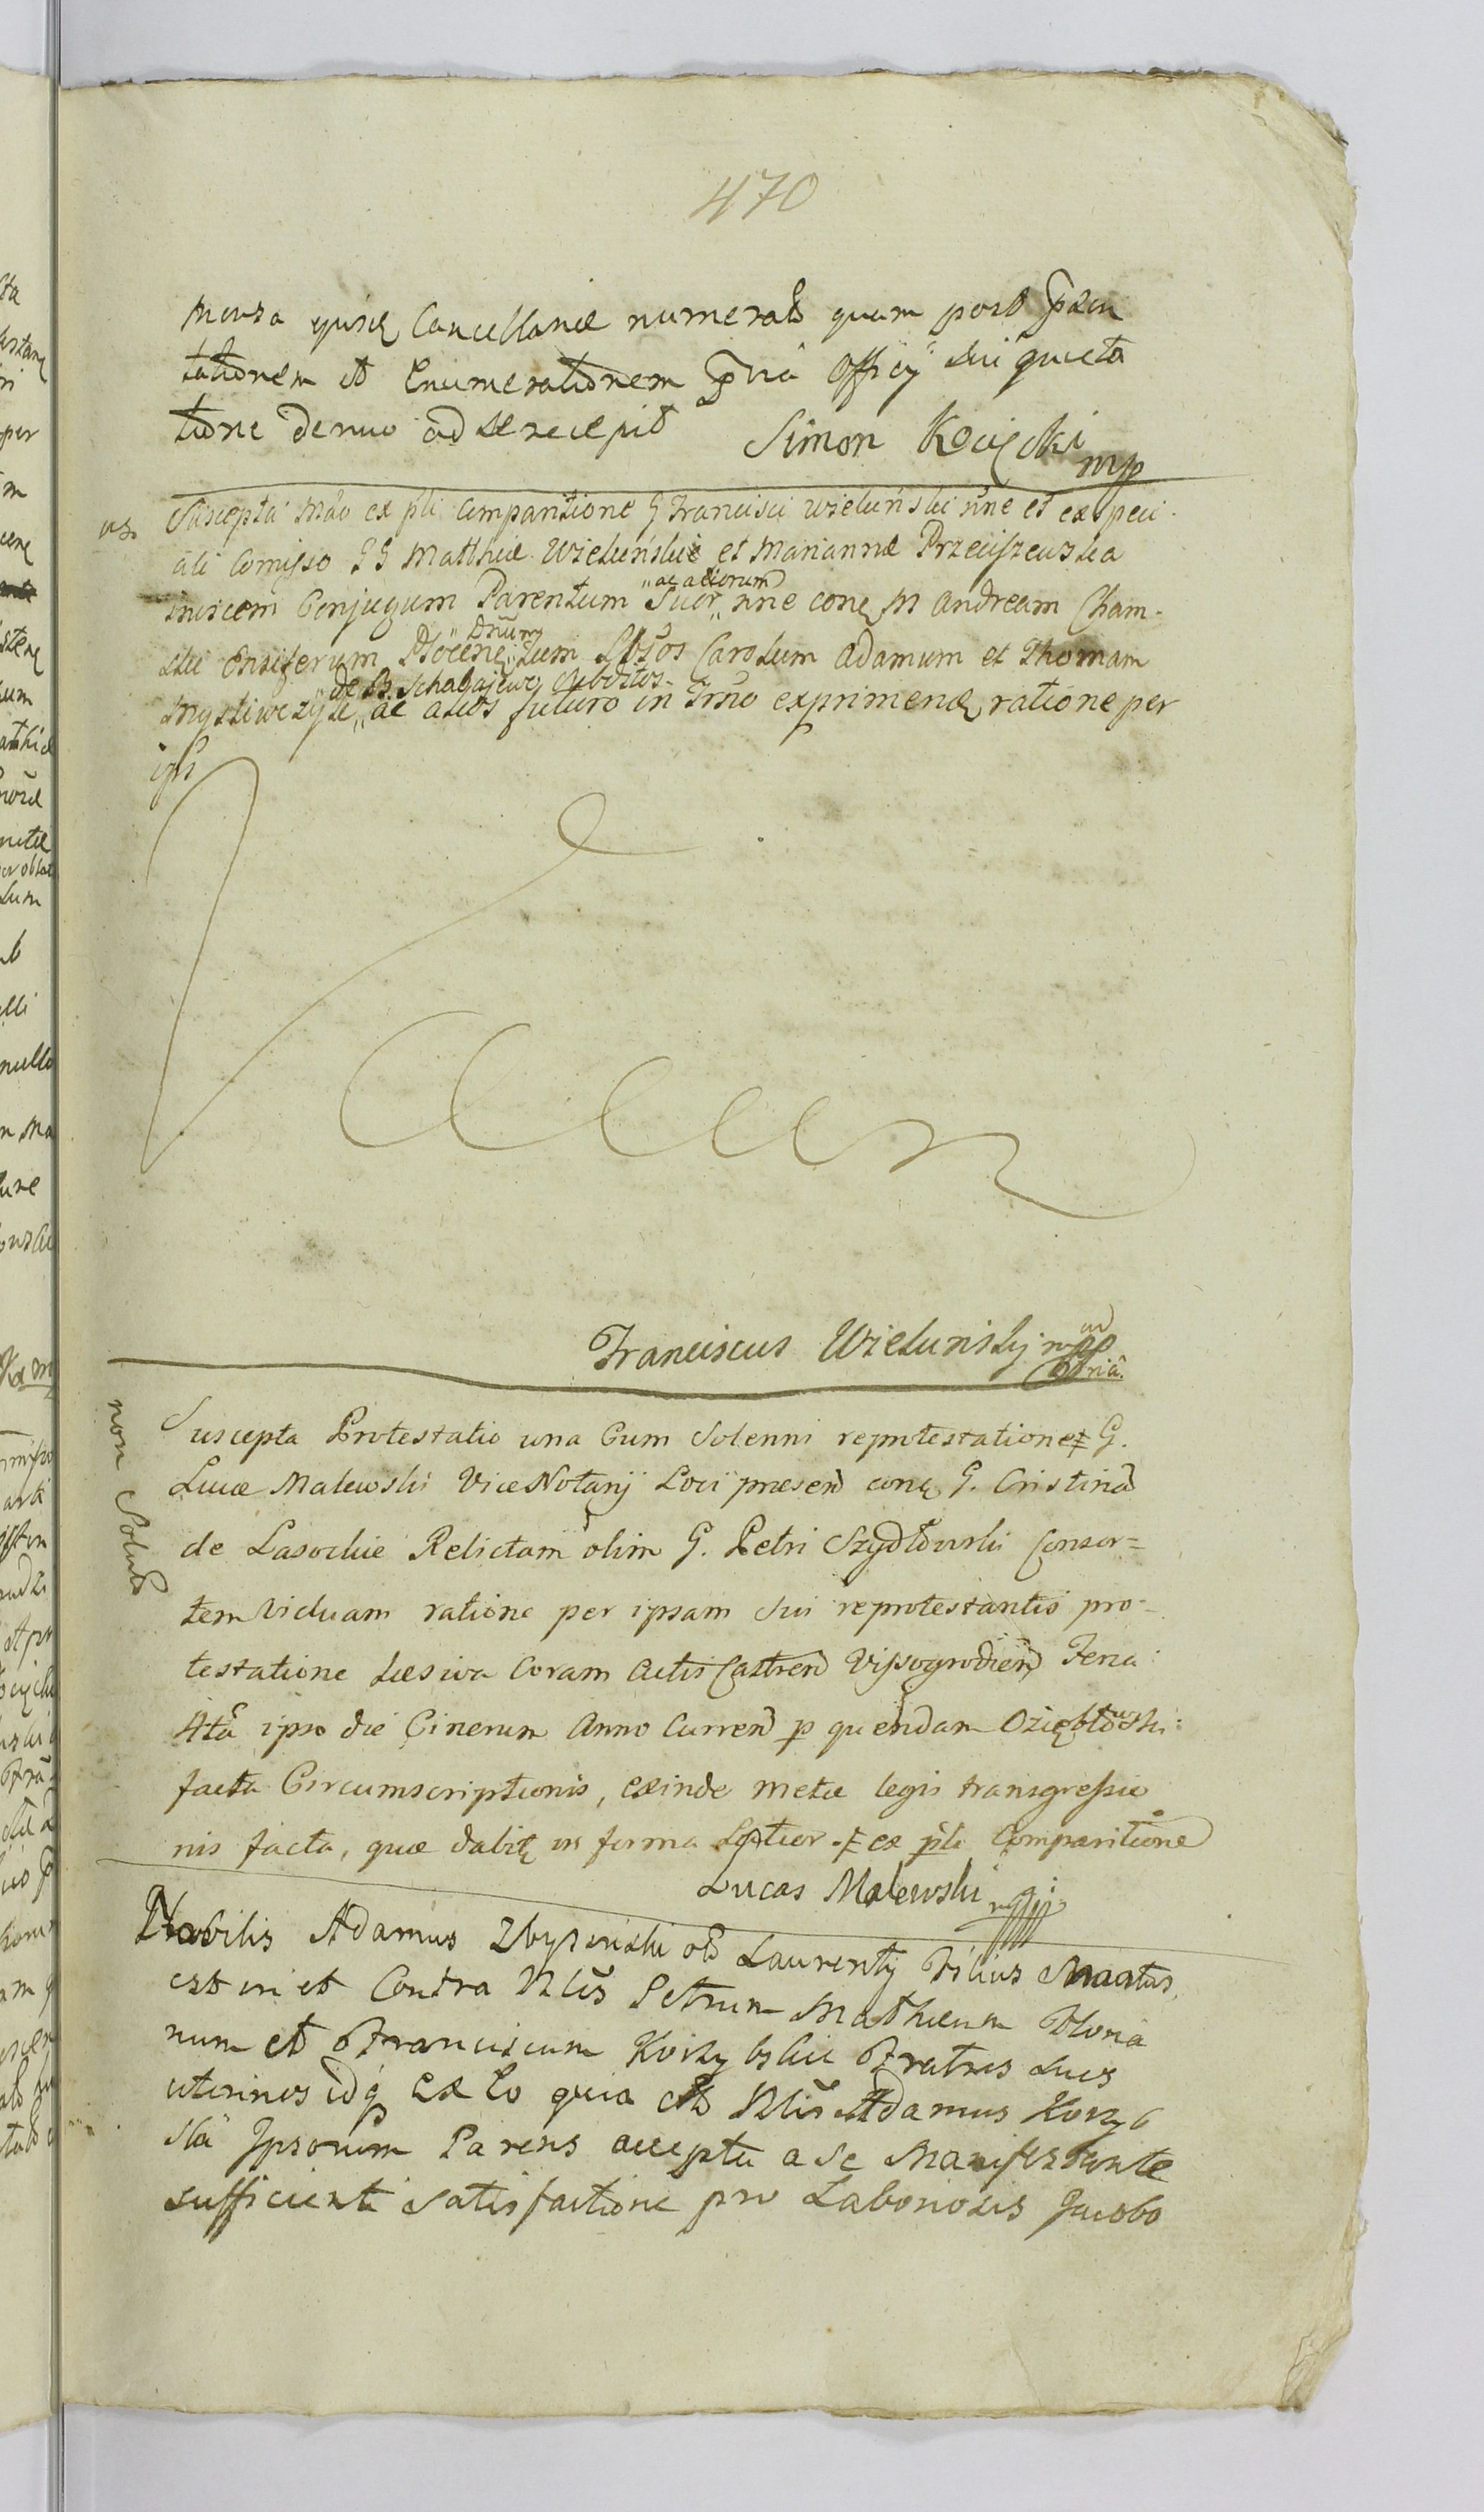 470
mensa ejusq Cancellariæ numerat quam post præsen
tationem et Enumerationem pria Officij sui quieta
tione denuo ad se recepit Simon Kocięcki mp
Suscepta Mão ex pli Comparitione G Francisci Wieluński nne et ex speci
ali Comisso GG Matthiæ Wieluńskie et Mariannæ Przeciszewska
invicem Conjugum Parentum Suor "ac aliorum" nne conq M Andream Cham-
ski Ensiferum Plocenq "Dnum" tum Lbsos Carolum Adamum et Thomam
Mysliwczyk "de B. Schabajewo subditos" ac alios futuro in Trno exprimenq ratione per
ips
Franciscus Wielunsky mpp
non Solut
Suscepta Protestatio una Cum Solenni reprotestatione G.
Lucæ Malewski ViceNotarij Loci præsen conq G. Cristinã
de Lasockie Relictam olim G. Petri Szydłowski Consor=
tem Viduam ratione per ipsam sui reprotestantis pro-
testatione læsiva Coram Actis Castren Vissogrodien Feria
4ta ipso die Cinerum Anno Curren p quendam Oziębłowski
facta Circumscriptionis, exinde metæ legis transgressio
nis facta, quæ dabitq in forma Lottior ex pli Comparitione
Lucas Malewski mpp
Nobilis Adamus Zbyzinski ot Laurentij Filius Mantus
est in et Contra Nlês Petrum Mathæum Floria
num et Franciscum Korzybskie Fratres suos
uterinos idq Ex Eo quia ot Nlis Adamus Korzyb
ski Ipsorum Parens accepta a se Manifestante
sufficienti satisfactione pro Laborioso Jacobo